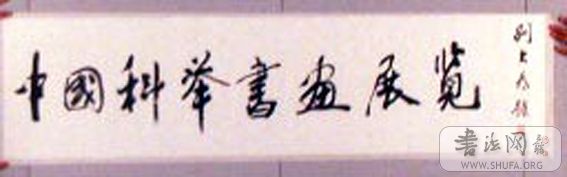 中國科举書画展览
刘大为题
書法网
WWW.SHUFA.ORG